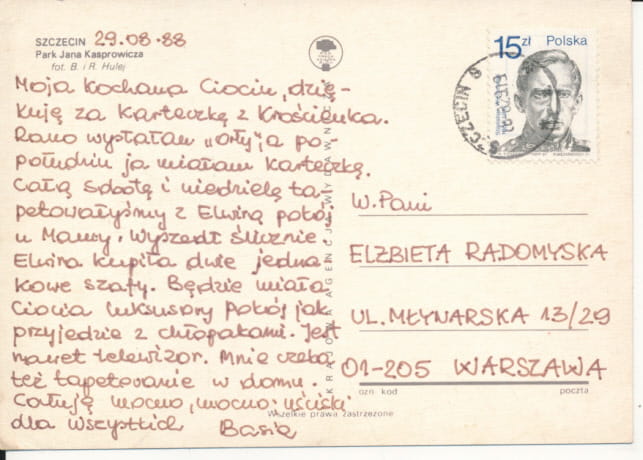 SZCZECIN 29.08.88
Park Jana Kasprowicza
fot. B. i R. Hulej
Moja kochana Ciociu, dzię-
kuję za karteczkę z Krościenka.
Rano wysłałam "orły", a po
południu ja miałam karteczkę.
Całą sobotę i niedzielę ta-
petowałyśmy z Elwirą pokój
u Mamy. Wyszedł ślicznie.
Elwira kupiła dwie jedna-
kowe szafy. Będzie miała
Ciocia luksusowy pokój jak
przyjedzie z chłopakami. Jest
nawet telewizor. Mnie czeka
też tapetowanie w domu.
Całuję mocno, mocno. uściski
dla wszystkich Basia
KRAJOWA AGENCJA WYDAWN
15 zł Polska
SZCZECIN
W. Pani
ELZBIETA RADOMYSKA
UL. MŁYNARSKA 13/29
01-205 WARSZAWA
ozn kod poczta
Wszelkie prawa zastrzeżone